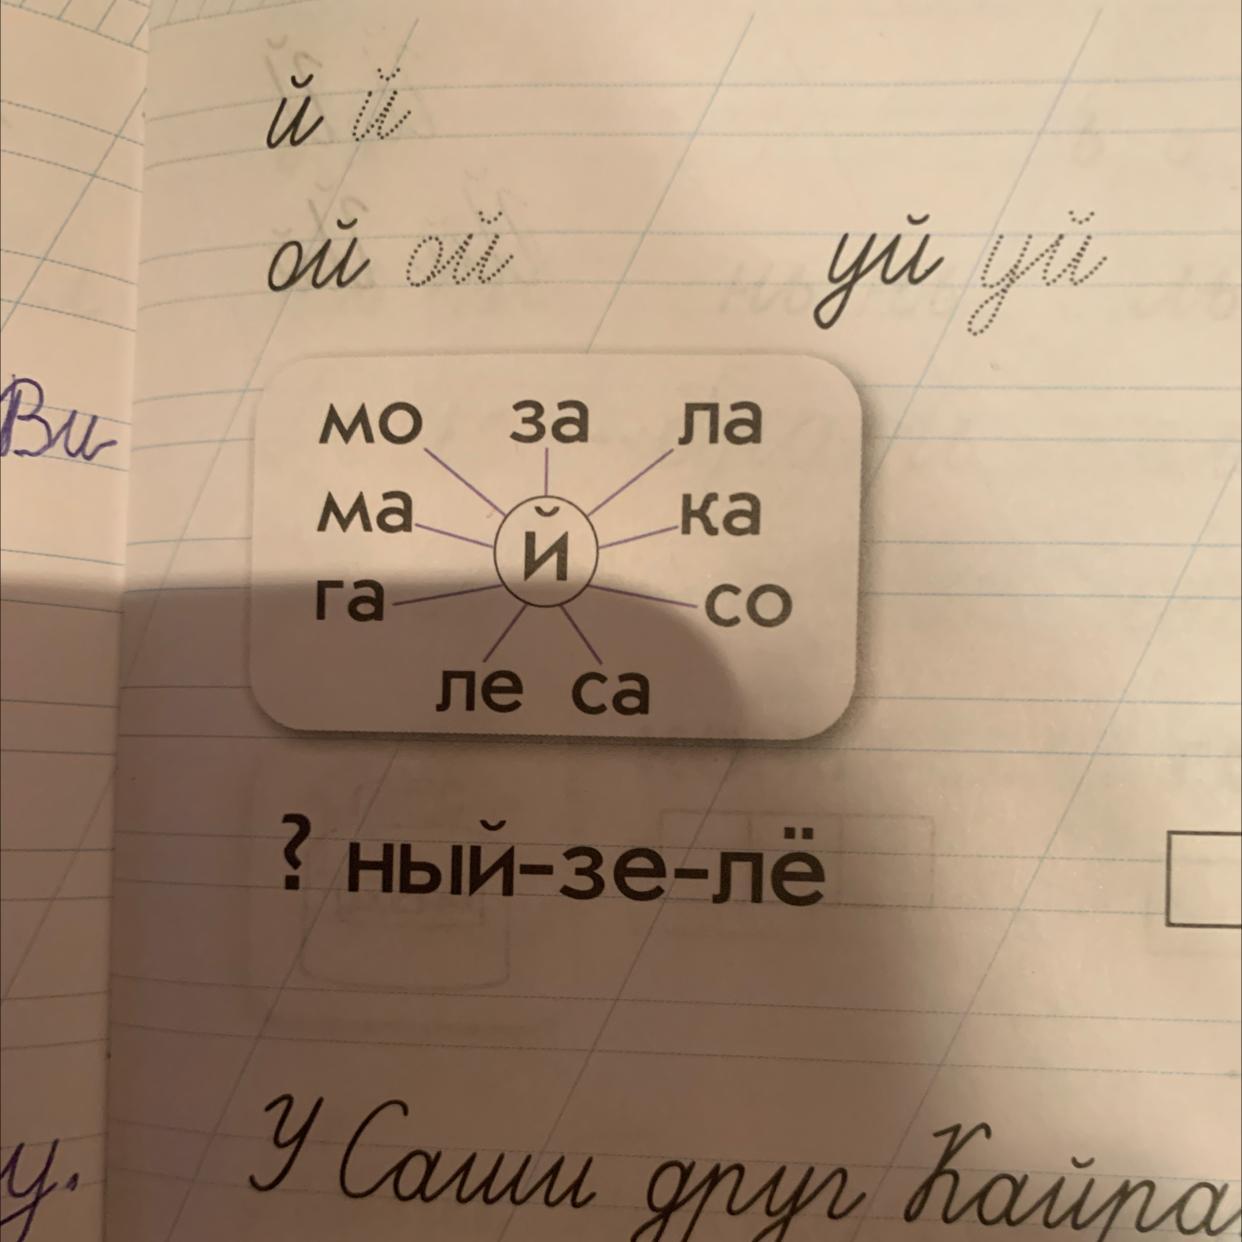 й й
ой ой уй уй
мо за ла
Ви
ма ка
й
га со
ле са
? ный-зе-лё
У Саши друг Кайра
у.